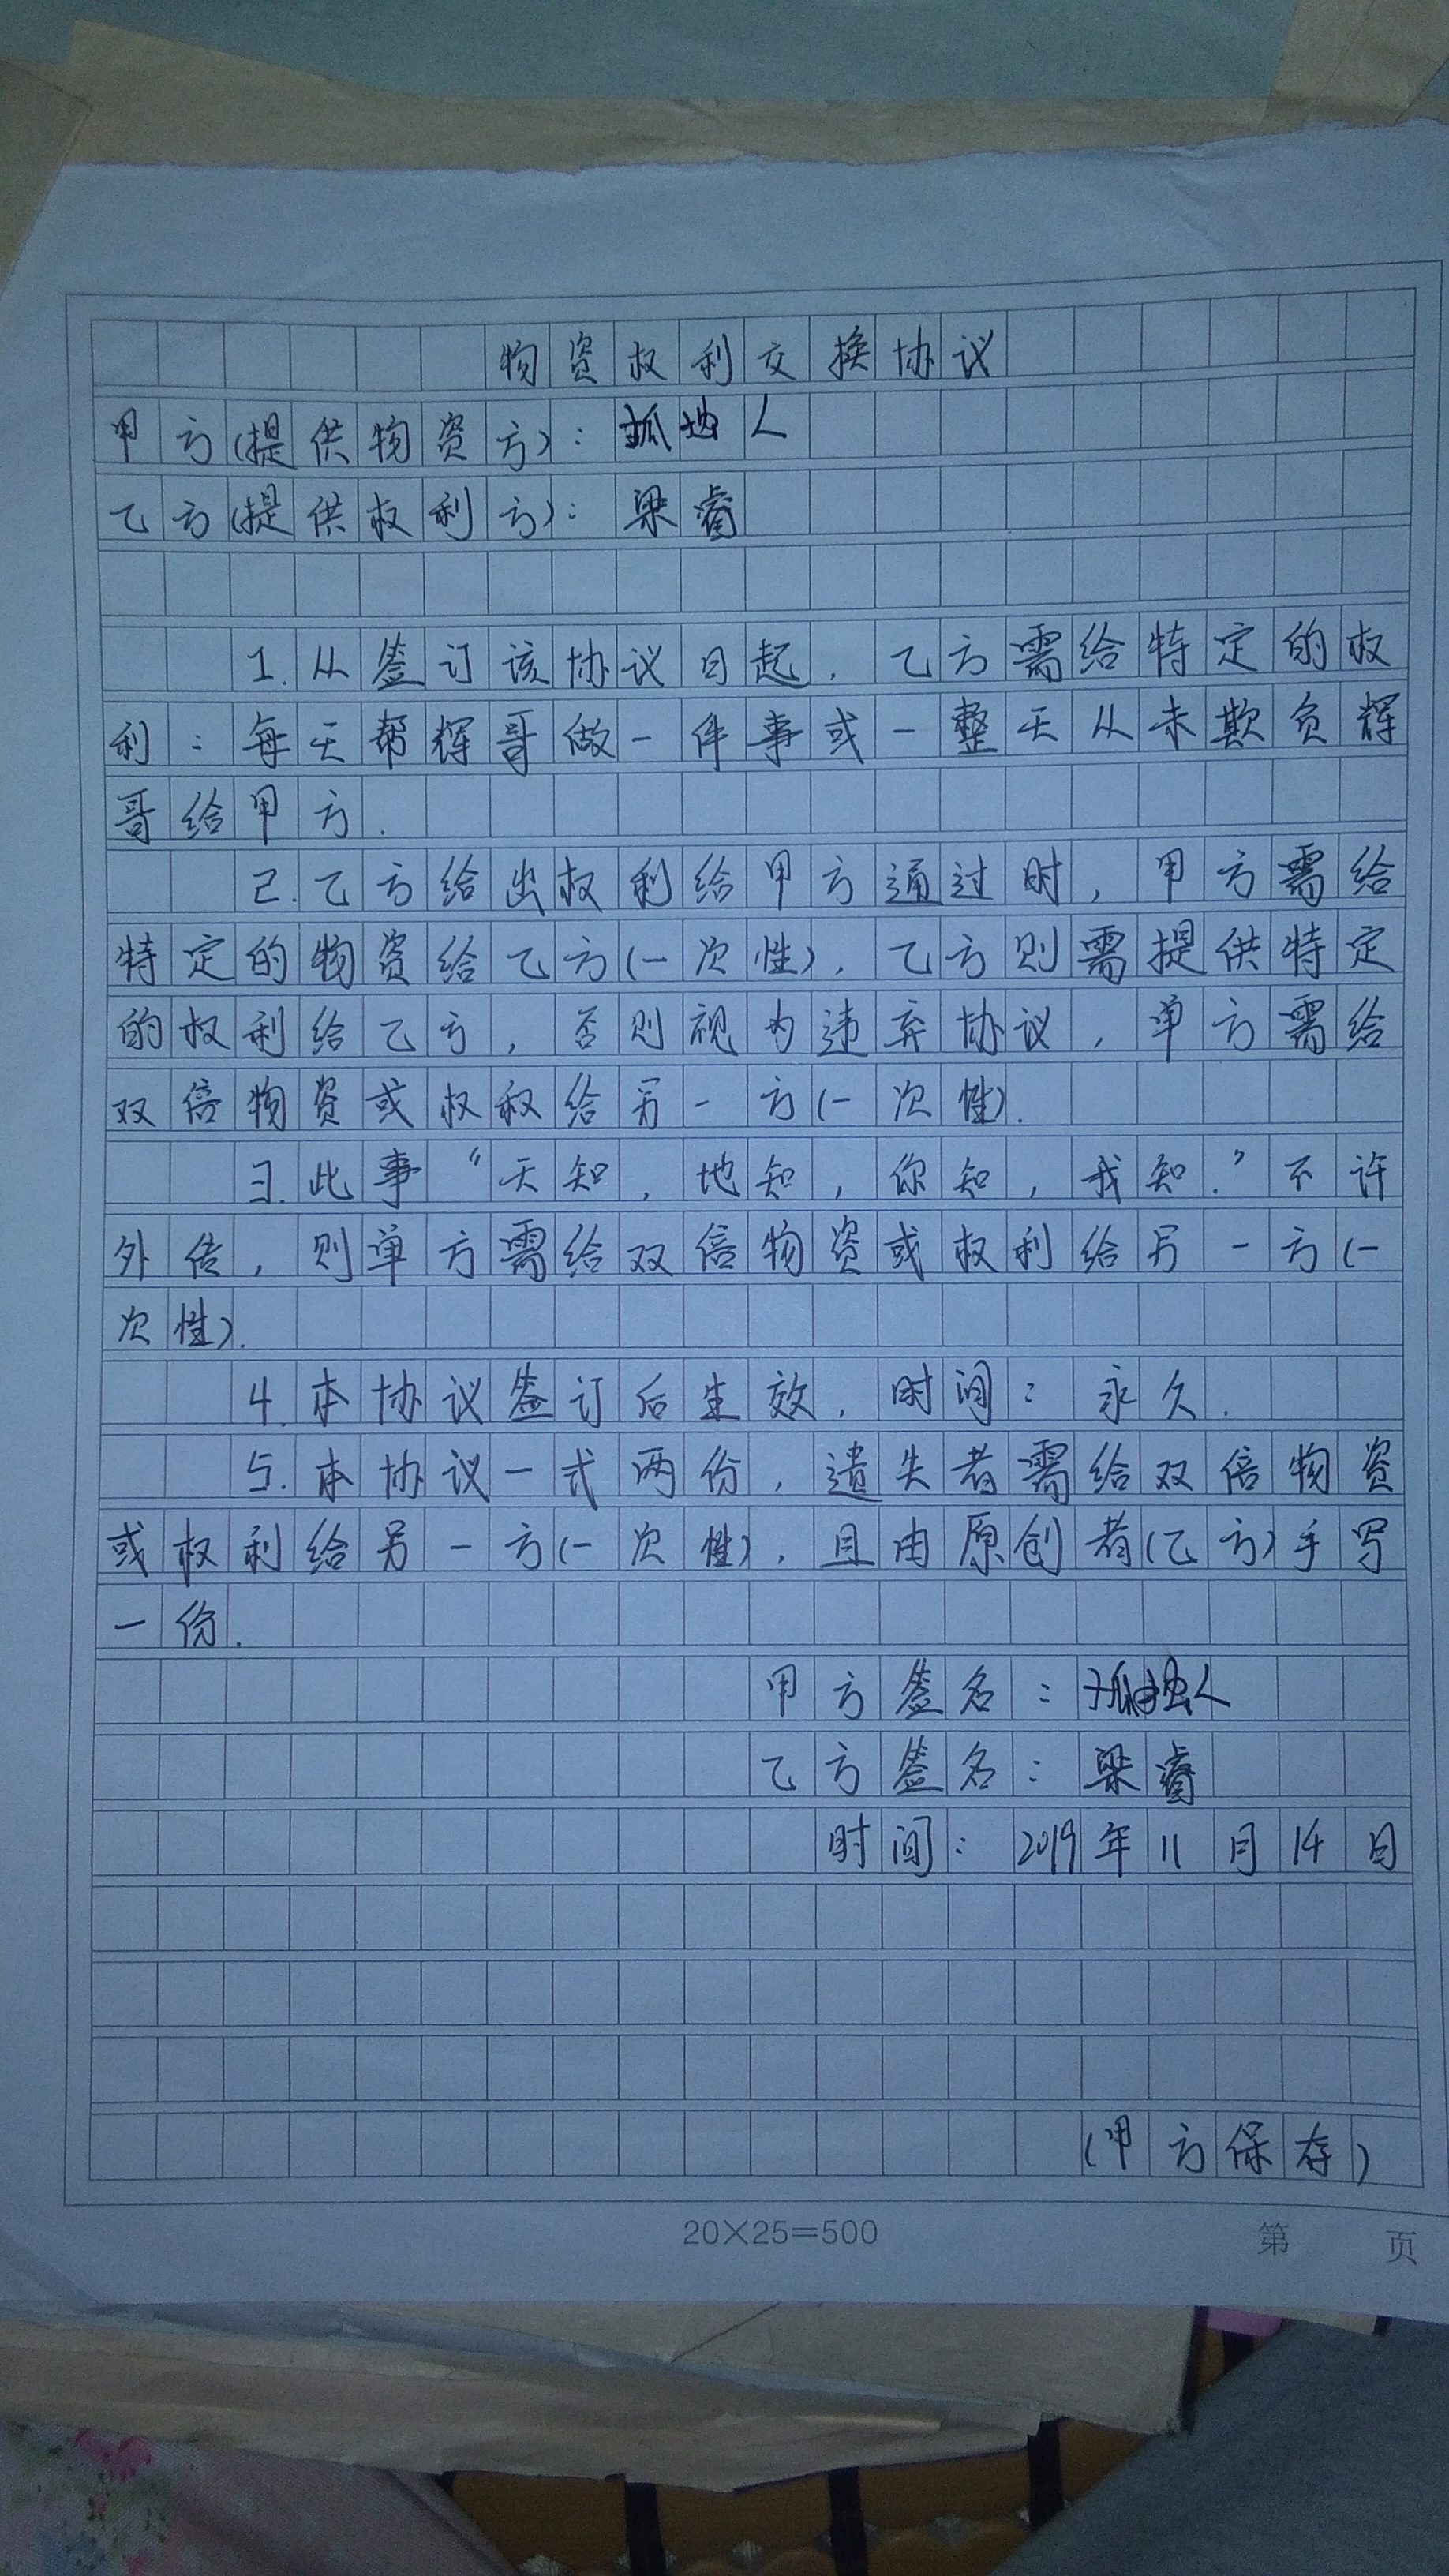 物资权利交换协议
甲方(提供物资方):孤独人
乙方(提供权利方):梁睿
1.从签订该协议日起,乙方需给特定的权
利:每天帮辉哥做一件事或一整天从未欺负辉
哥给甲方.
2.乙方给出权利给甲方通过时,甲方需给
特定的物资给乙方(一次性),乙方则需提供特定
的权利给乙方,否则视为违弃协议,单方需给
双倍物资或权权给另一方(一次性).
3.此事“天知,地知,你知,我知.”不许
外传,则单方需给双倍物资或权利给另一方(一
次性).
4.本协议签订后生效,时间:永久.
5.本协议一式两份,遗失者需给双倍物资
或权利给另一方(一次性),且由原创者(乙方)手写
一份.
甲方签名:孤独人
乙方签名:梁睿
时间:2019年11月14日
(甲方保存)
20×25=500
第 页